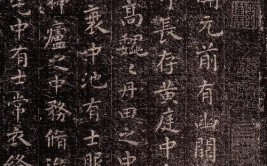 關元前有幽闕
可長存黃庭中
髙巍〻丹田之中
衰中池有士服
神廬之中務脩治
宅中有士常衣絳